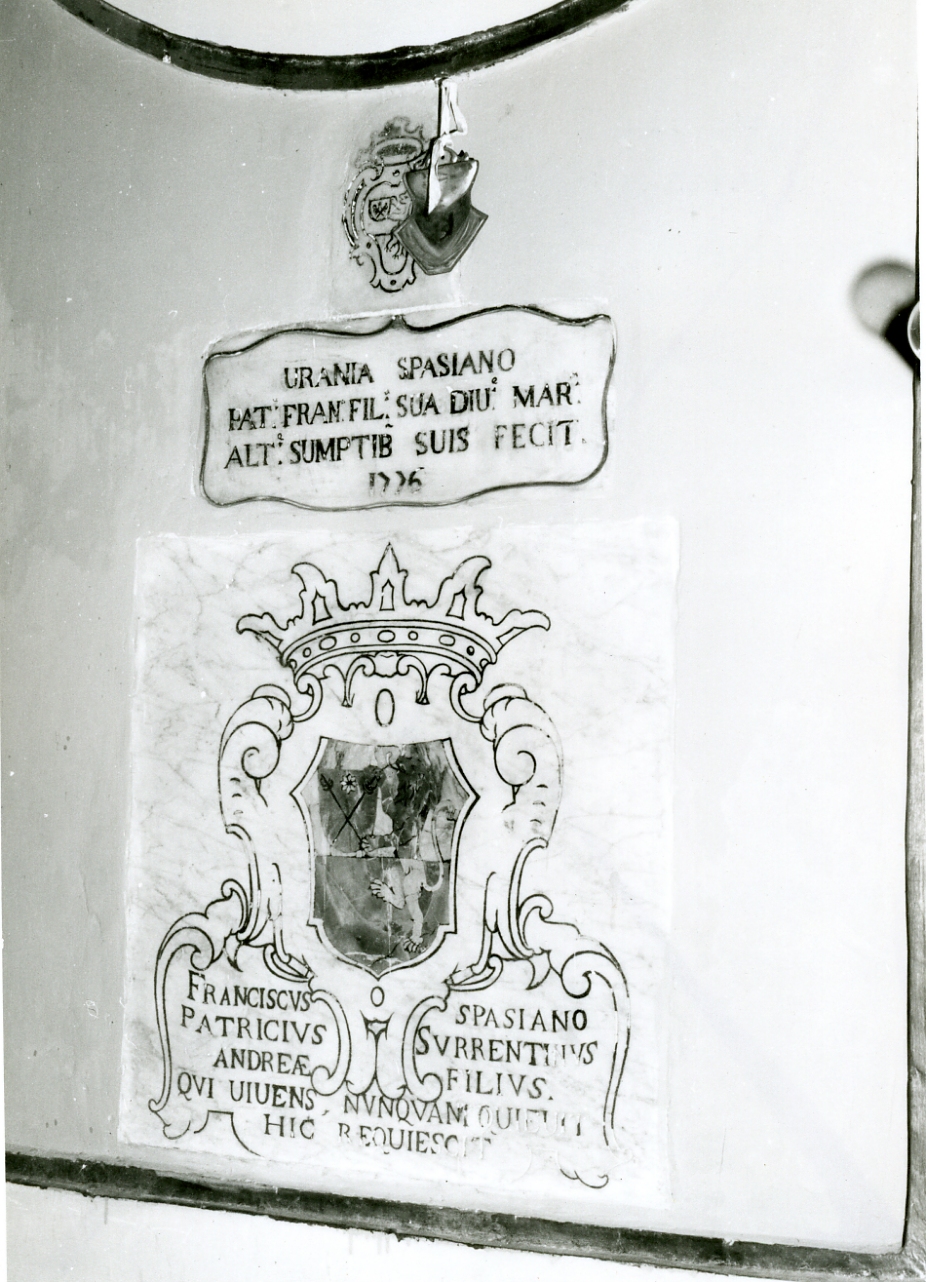 URANIA SPASIANO
PAT: FRAN: FIL: SUA DIU: MAR:
ALT: SUMPTIB̃ SUIS FECIT.
1776
FRANCISCVS SPASIANO
PATRICIVS SVRRENTINVS
ANDREÆ FILIVS.
QUI UIUENS, NVNQVAM QUIEUIT
HIC REQUIESCIT